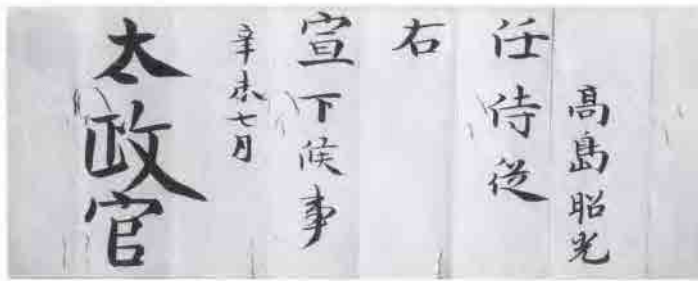 高島昭光
任侍従
右
宣下候事
辛未七月
太政官